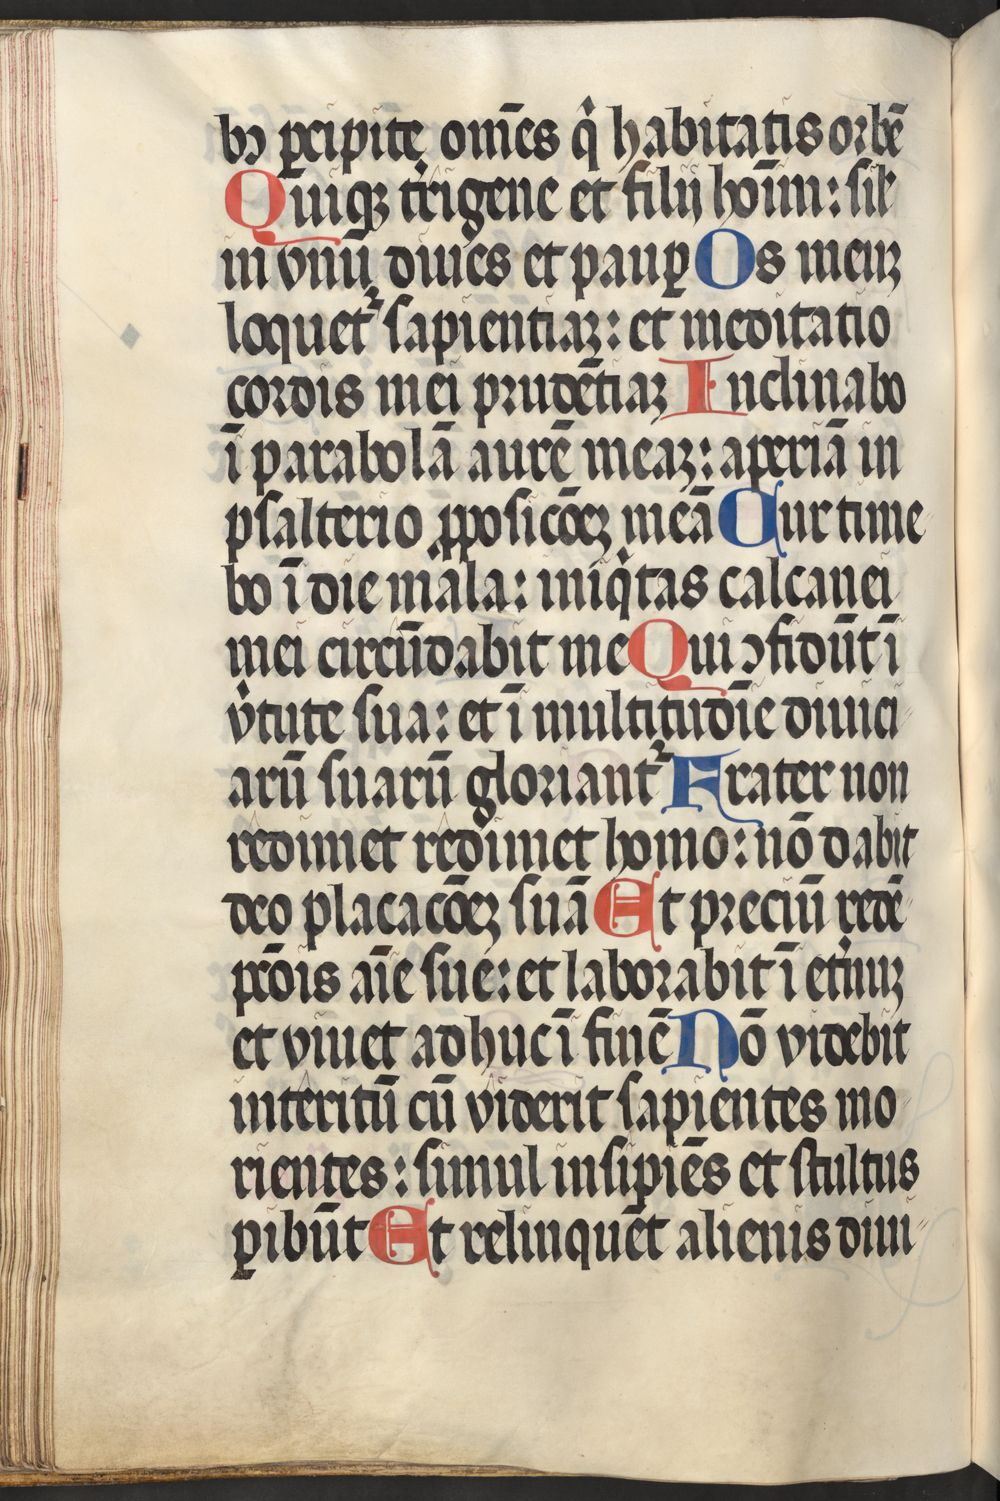 bꝫ ꝑcipite om̅es qͥ habitatis orbe̅
Quiqꝫ t̾rigene et filij hoīm: sil̕
in vnū diues et pauꝑ Os meuꝫ
loquet᷑ sapientiaꝫ: et meditatio
cordis mei prude̅tiaꝫ Inclinabo
ī parabolā aure̅ meaꝫ: aperiā in
psalterio ꝓposicōeꝫ meā Cur time
bo ī die mala: iniqͥtas calcanei
mei circūdabit me Qui ↄfidūt ī
v̾tute sua: et ī multitudīe diuici
arū suarū gloriant᷑ Frater non
redimet redimet homo: nō dabit
deo placacōeꝫ suā Et preciū redē
pcōis aīe sue: et laborabit ī et̾nuꝫ
et viuet adhuc ī finē Nō videbit
interitū cū viderit sapientes mo
rientes: simul insipiēs et stultus
ꝑibūt Et relinquēt alienis diui